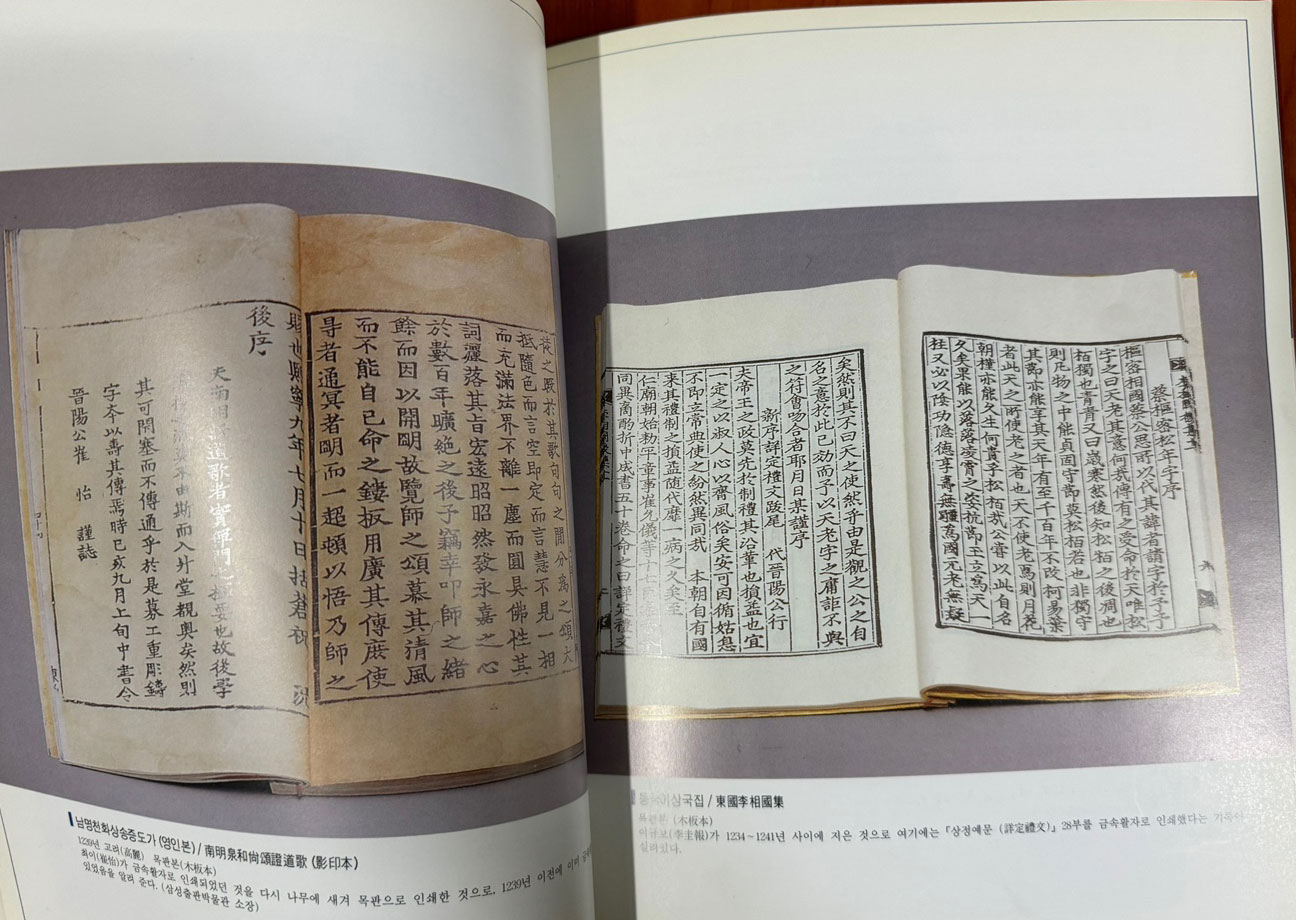 於其歌句句之間分爲之頌大
抵隨色而言空即定而言慧不見一相
而充滿法界不離一塵而圓具佛性其
詞灑落其旨宏遠昭昭然發永嘉之心
於數百年曠絶之後予竊幸叩師之緒
餘而因以開明故覽師之頌慕其清風
而不能自已命之鏤扳用廣其傳庶使
尋者通冥者明而一起頓以悟乃師之
賜也熙寧九年七月十日括蒼祝 況
後序
夫南明 道歌者實禪門之樞要也故後學
莫不由斯而入升堂覩奧矣然則
其可閉塞而不傳通乎於是募工重彫鑄
字本以壽其傳焉時已亥九月上旬中書令
晉陽公崔 怡 謹誌
남명천화상송증도가 (영인본) / 南明泉和尙頌證道歌 (影印本)
1239년 고려(高麗) 목판본(木板本)
최이(崔怡)가 금속활자로 인쇄되었던 것을 다시 나무에 새겨 목판으로 인쇄한 것으로, 1239년 이전에 이미
있었음을 알려 준다. (삼성출판박물관 소장)
蔡樞密松年字序
樞密相國蔡公思所以代其諱者請字於予予
字之曰天老其意何哉傳有之受命於天唯松
栢獨也青青又曰歲寒然後知松栢之後凋也
則凡物之中能貞固守節莫松栢若也非獨守
其節亦能享其天年有至千百年不改柯易葉
者此天之所使老之者也天不使老焉則月花
朝槿亦能久生何貴乎松栢哉公嘗以此自名
久矣果能以落落凌霄之姿抗節王立爲天一
柱又必以陰功隱德享壽無疆爲國元老無疑
矣然則其不曰天之使然乎由是觀之公之自
名之意於此已効而予以天老字之庸詎不與
之符會吻合者耶月日某謹序
新序詳定禮文跋尾 代晉陽公行
夫帝王之政莫先於制禮其沿革也損益也宜
一定之以淑人心以齊風俗矣安可因循姑息
不即立常典使之紛然異同哉 本朝自有國
來其禮制之損益隨代靡一病之久矣至
仁廟朝始勑平章事崔允儀等十七臣
同異商酌折中成書五十卷命之曰詳定禮文
이상국집 / 東國李相國集
목판본 (木板本)
이규보(李圭報)가 1234~1241년 사이에 지은 것으로 여기에는 『상정예문 (詳定禮文)』 28부를 금속활자로 인쇄했다는
실려있다.